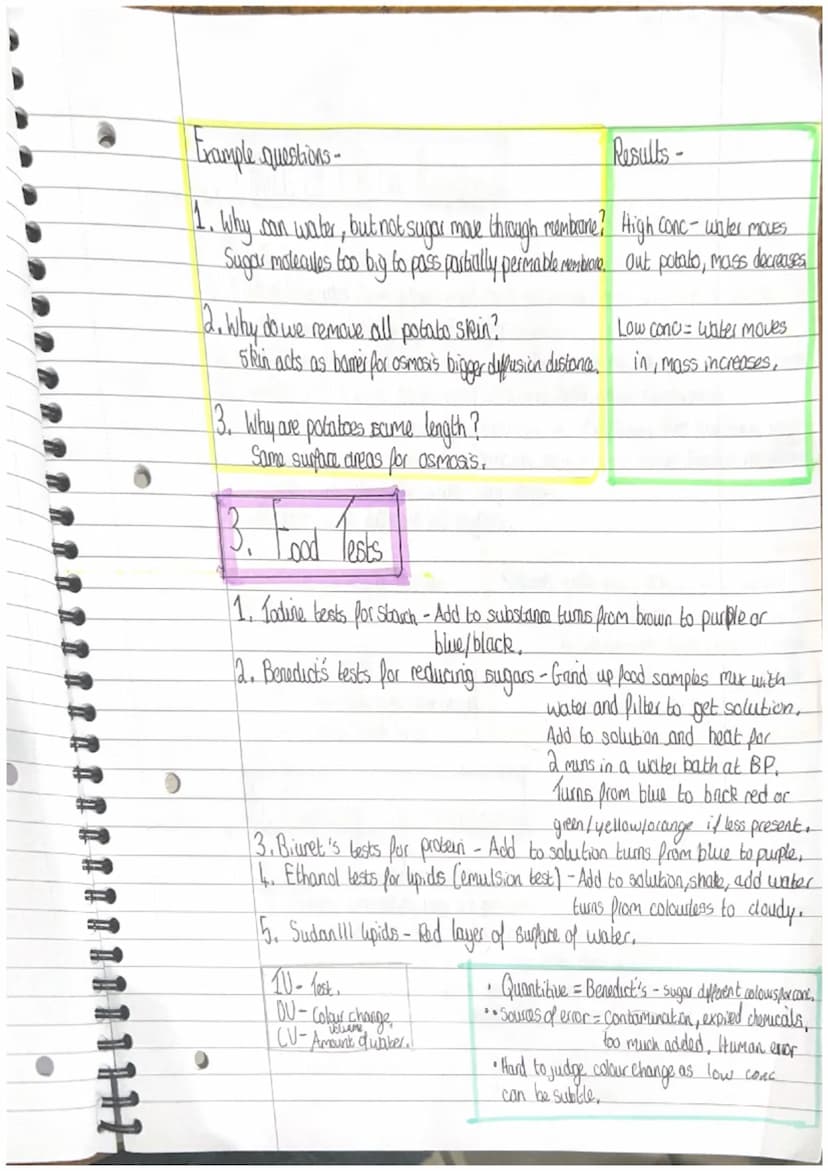 Example questions -
1. Why can water, but not sugar move through membrane?
Sugar molecules too big to pass partially permable membrane.
2. Why do we remove all potato skin?
Skin acts as barrier for osmosis bigger diffusion distance.
3. Why are potatoes same length?
Same surface areas for osmosis.
Results -
High conc - water moves
out potato, mass decreases
Low conc = water moves
in, mass increases.
3. Food Tests
1. Iodine tests for starch - Add to substance turns from brown to purple or
blue/black.
2. Benedict's tests for reducing sugars - Grind up food samples mix with
water and filter to get solution.
Add to solution and heat for
2 mins in a water bath at BP.
Turns from blue to brick red or
green/yellow/orange if less present.
3. Biuret's tests for protein - Add to solution turns from blue to purple.
4. Ethanol tests for lipids (emulsion test) - Add to solution, shake, add water
turns from colourless to cloudy.
5. Sudan III lipids - Red layer of surface of water.
IV - Test.
DV - Colour change.
CV - Amount volume of water.
• Quantitive = Benedict's - sugar different colours for conc.
•• Sources of error = contamination, expired chemicals,
too much added, Human error
• Hard to judge colour change as low conc
can be subtle.